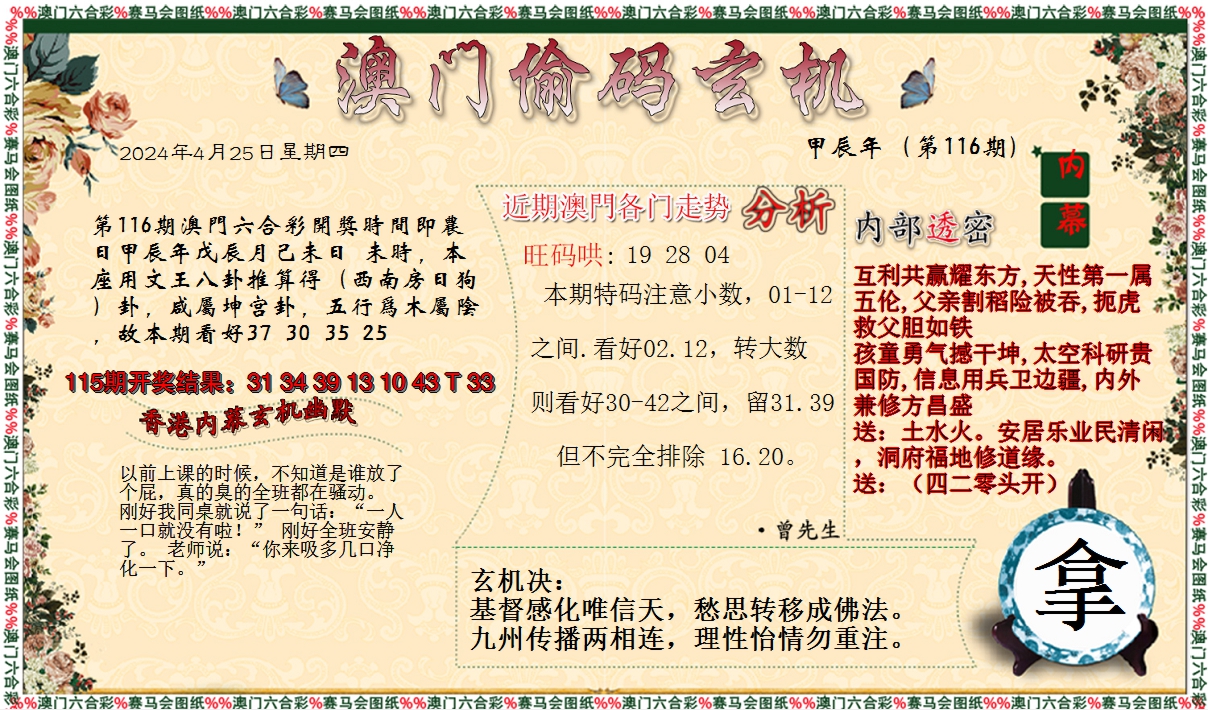 %%澳门六合彩%赛马会图纸%%澳门六合彩%赛马会图纸%%澳门六合彩%赛马会图纸%%澳门六合彩%赛马会图纸%%澳门六合彩%赛马会图纸%%澳门六合彩%赛马会图纸%%
澳门偷码玄机
2024年4月25日星期四
甲辰年（第116期）
内幕
第116期澳門六合彩開獎時間即農
日甲辰年戊辰月己未日 未時，本
座用文王八卦推算得（西南房日狗
）卦，咸屬坤宫卦，五行爲木屬陰
，故本期看好37 30 35 25
115期开奖结果：31 34 39 13 10 43 T 33
香港内幕玄机幽默
以前上课的时候，不知道是谁放了
个屁，真的臭的全班都在骚动。
刚好我同桌就说了一句话：“一人
一口就没有啦！” 刚好全班安静
了。 老师说：“你来吸多几口净
化一下。”
近期澳門各门走势 分析
旺码哄: 19 28 04
本期特码注意小数，01-12
之间.看好02.12，转大数
则看好30-42之间，留31.39
但不完全排除 16.20。
·曾先生
内部透密
互利共赢耀东方,天性第一属
五伦,父亲割稻险被吞,扼虎
救父胆如铁
孩童勇气撼干坤,太空科研贵
国防,信息用兵卫边疆,内外
兼修方昌盛
送：土水火。安居乐业民清闲
，洞府福地修道缘。
送：（四二零头开）
玄机决：
基督感化唯信天，愁思转移成佛法。
九州传播两相连，理性怡情勿重注。
拿
%%澳门六合彩%赛马会图纸%%澳门六合彩%赛马会图纸%%澳门六合彩%赛马会图纸%%澳门六合彩%赛马会图纸%%澳门六合彩%赛马会图纸%%澳门六合彩%赛马会图纸%%